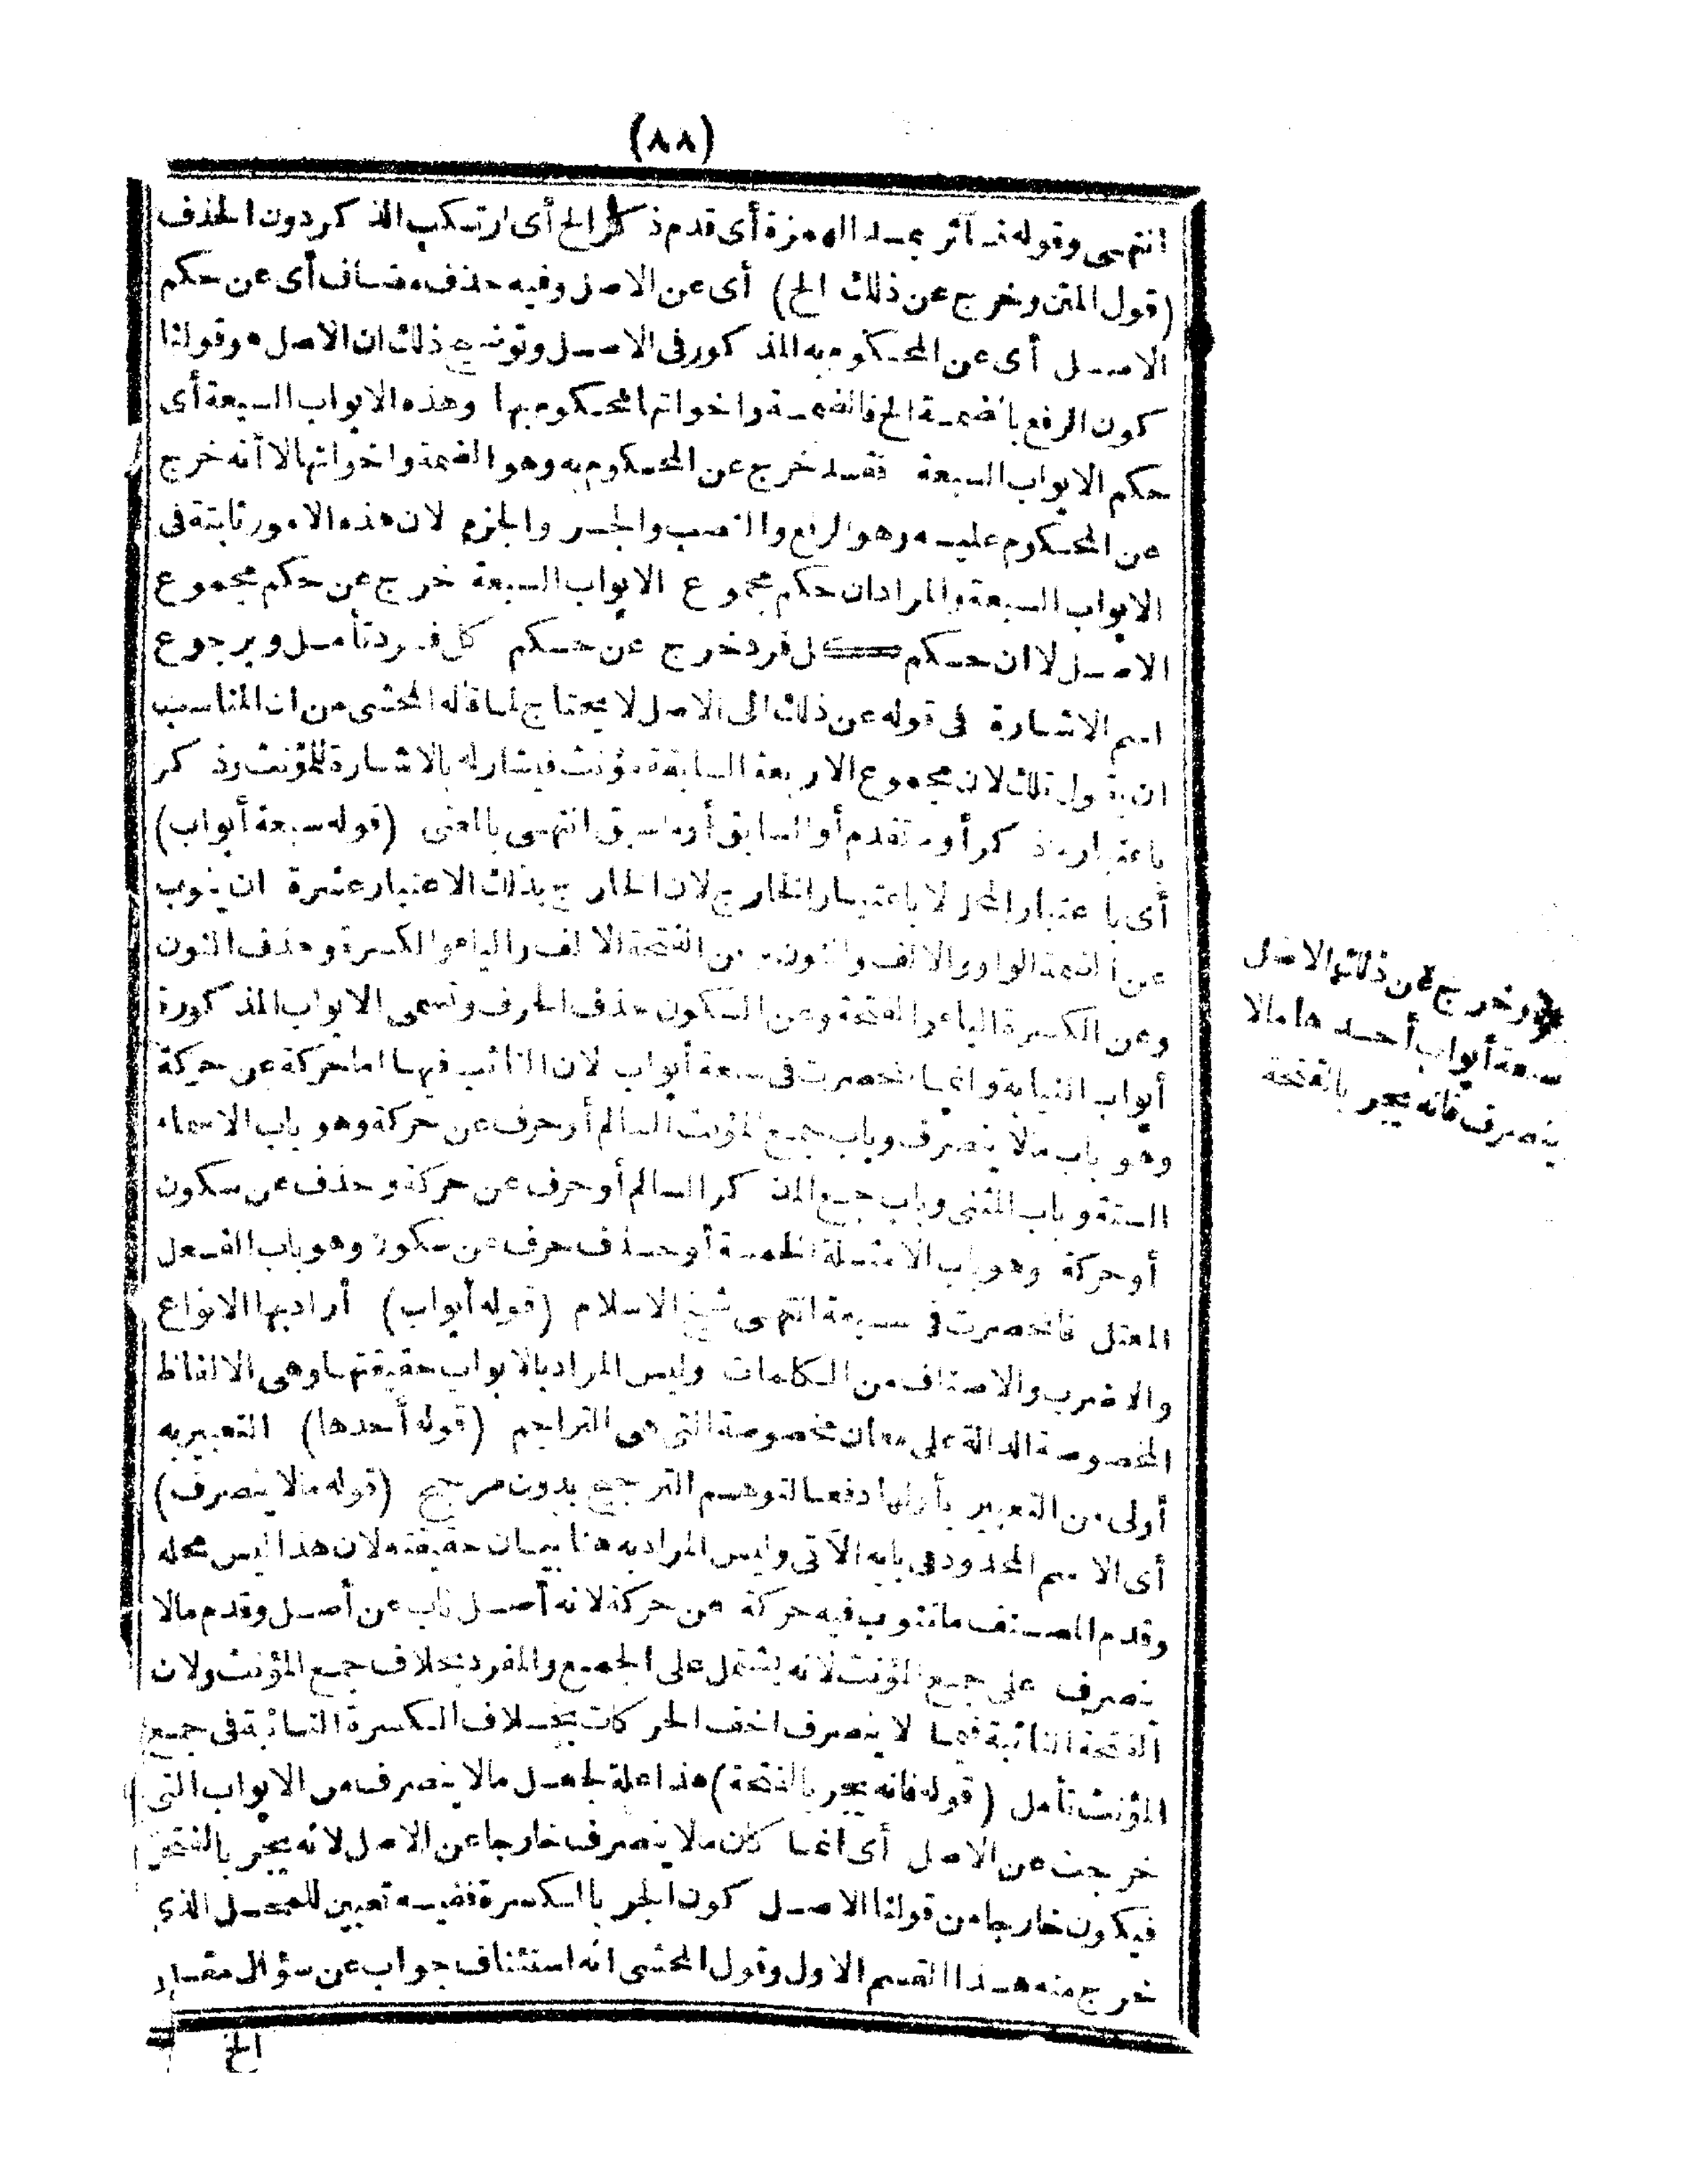 (٨٨)
انتهى وقوله فآثر بمد الهمزة أى قدم ذكر الخ أى ارتكب الذكر دون الحذف
(قول المتن وخرج عن ذلك الخ) أى عن الاصل وفيه حذف مضاف أى عن حكم
الاصل أى عن المحكوم به المذكور فى الاصل وتوضيح ذلك ان الاصل هو قولنا
كون الرفع بالضمة الخ فالضمة واخواتها محكوم بها وهذه الابواب السبعة أى
حكم الابواب السبعة فقد خرج عن المحكوم به وهو الضمة واخواتها لا أنه خرج
عن المحكوم عليه وهو الرفع والنصب والجر والجزم لان هذه الامور ثابتة فى
الابواب السبعة والمراد ان حكم مجموع الابواب السبعة خرج عن حكم مجموع
الاصل لا ان حكم كل فرد خرج عن حكم كل فرد تأمل وبرجوع
اسم الاشارة فى قوله عن ذلك الى الاصل لا يحتاج لما قاله المحشى من ان المناسب
ان يقول تلك لان مجموع الاربعة السابقة مؤنث فيشار له بالاشارة للمؤنث وذكر
باعتبار ما ذكر أو ما تقدم أو السابق أو ما سبق انتهى بالمعنى (قوله سبعة أبواب)
أى باعتبار المحل لا باعتبار الخارج لان الخارج بذلك الاعتبار عشرة ان ينوب
عن الضمة الواو والالف والنون وعن الفتحة الالف والياء والكسرة وحذف النون
وعن الكسرة الياء والفتحة وعن السكون حذف الحرف وتسمى الابواب المذكورة
أبواب النيابة وانما انحصرت فى سبعة أبواب لان النائب فيها اما حركة عن حركة
وهو باب ما لا ينصرف وباب جمع المؤنث السالم أو حرف عن حركة وهو باب الاسماء
الستة وباب المثنى وباب جمع المذكر السالم أو حرف عن حركة وحذف عن سكون
أو حركة وهو باب الامثلة الخمسة أو حذف حرف عن سكون وهو باب الفعل
المعتل فانحصرت فى سبعة انتهى شيخ الاسلام (قوله أبواب) أراد بها الانواع
والاضرب والاصناف من الكلمات وليس المراد بالابواب حقيقتها وهى الالفاظ
المخصوصة الدالة على معان مخصوصة التى هى التراجم (قوله أحدها) التعبير به
أولى من التعبير بأولها دفعا لتوهم الترجيح بدون مرجح (قوله ما لا ينصرف)
أى الاسم المحدود فى بابه الآتى وليس المراد به هنا بيان حقيقته لان هذا ليس محله
وقدم المصنف ما تنوب فيه حركة عن حركة لانه أصل ناب عن أصل وقدم ما لا
ينصرف على جمع المؤنث لانه يشتمل على الجمع والمفرد بخلاف جمع المؤنث ولان
الفتحة النائبة فيما لا ينصرف اخف الحركات بخلاف الكسرة النائبة فى جمع
المؤنث تأمل (قوله فانه يجر بالفتحة) هذا علة لجعل ما لا ينصرف من الابواب التى
خرجت عن الاصل أى انما كان ما لا ينصرف خارجا عن الاصل لانه يجر بالفتحة
فيكون خارجا من قولنا الاصل كون الجر بالكسرة ففيه تعيين للمحل الذى
خرج منه هذا القسم الاول وقول المحشى انه استئناف جواب عن سؤال مقدر
الخ
وخرج عن ذلك الاصل
سبعة أبواب أحدها ما لا
ينصرف فانه يجر بالفتحة